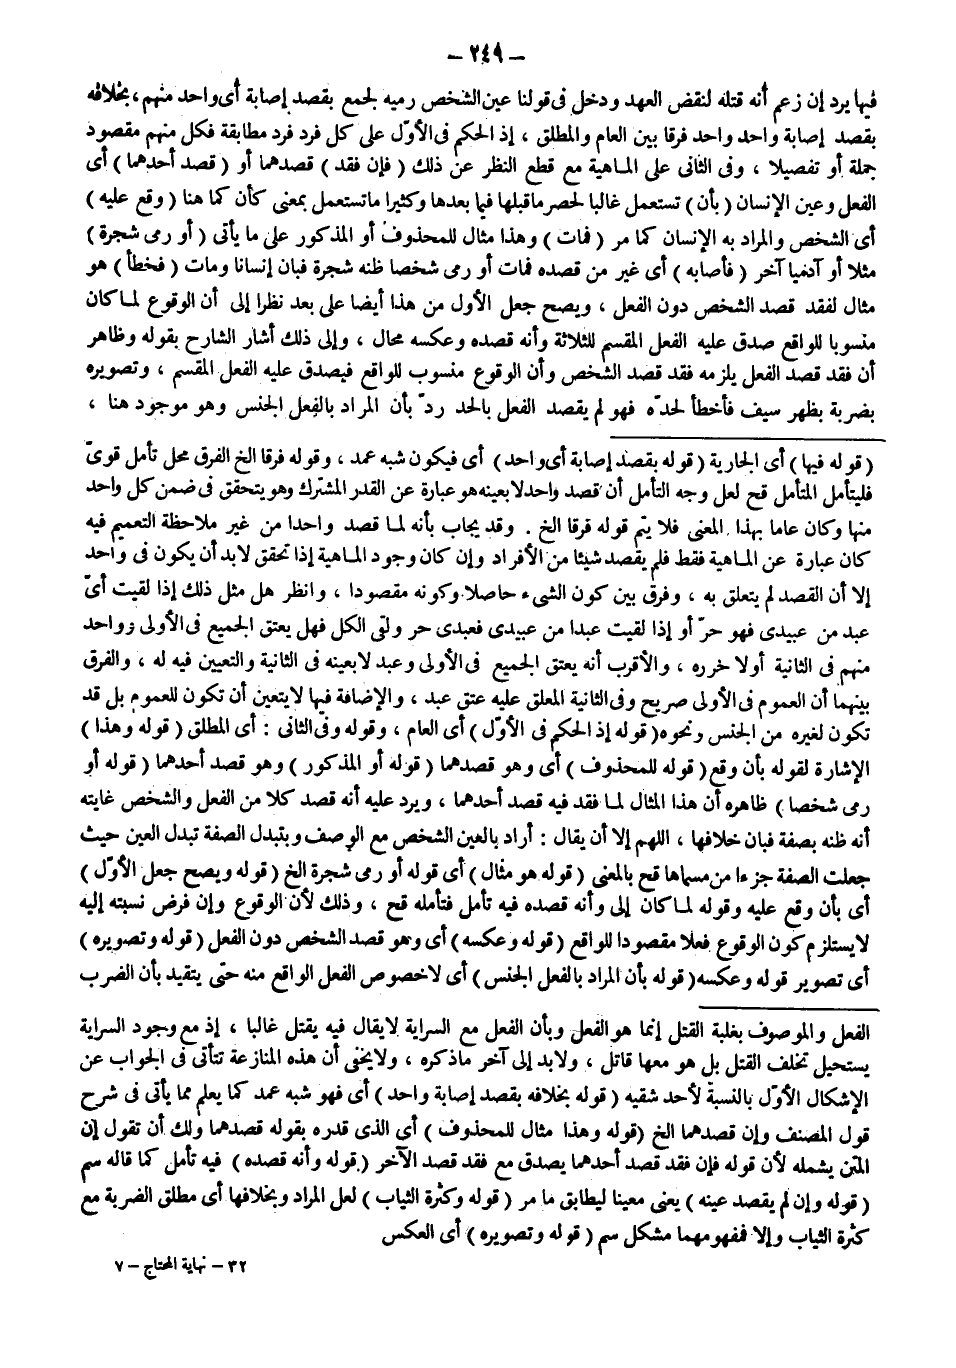 – ٢٤٩ –
فيها يرد إن زعم أنه قتله لنقض العهد ودخل فى قولنا عين الشخص رميه لجمع بقصد إصابة أى واحد منهم ، بخلافه
بقصد إصابة واحد واحد فرقا بين العام والمطلق ، إذ الحكم فى الأوّل على كل فرد فرد مطابقة فكل منهم مقصود
جملة أو تفصيلا ، وفى الثانى على الماهية مع قطع النظر عن ذلك ( فإن فقد ) قصدهما أو ( قصد أحدهما ) أى
الفعل وعين الإنسان ( بأن ) تستعمل غالبا لحصر ماقبلها فيما بعدها وكثيرا ماتستعمل بمعنى كأن كما هنا ( وقع عليه )
أى الشخص والمراد به الإنسان كما مر ( فمات ) وهذا مثال للمحذوف أو المذكور على ما يأتى ( أو رمى شجرة )
مثلا أو آدميا آخر ( فأصابه ) أى غير من قصده فمات أو رمى شخصا ظنه شجرة فبان إنسانا ومات ( فخطأ ) هو
مثال لفقد قصد الشخص دون الفعل ، ويصح جعل الأول من هذا أيضا على بعد نظرا إلى أن الوقوع لما كان
منسوبا للواقع صدق عليه الفعل المقسم للثلاثة وأنه قصده وعكسه محال ، وإلى ذلك أشار الشارح بقوله وظاهر
أن فقد قصد الفعل يلزمه فقد قصد الشخص وأن الوقوع منسوب للواقع فيصدق عليه الفعل المقسم ، وتصويره
بضربة بظهر سيف فأخطأ لحدّه فهو لم يقصد الفعل بالحد ردّ بأن المراد بالفعل الجنس وهو موجود هنا ،
( قوله فيها ) أى الحارية ( قوله بقصد إصابة أى واحد ) أى فيكون شبه عمد ، وقوله فرقا الخ الفرق محل تأمل قوىّ
فليتأمل المتأمل قح لعل وجه التأمل أن قصد واحد لابعينه هو عبارة عن القدر المشترك وهو يتحقق فى ضمن كل واحد
منها وكان عاما بهذا المعنى فلا يتم قوله فرقا الخ . وقد يجاب بأنه لما قصد واحدا من غير ملاحظة التعميم فيه
كان عبارة عن الماهية فقط فلم يقصد شيئا من الأفراد وإن كان وجود الماهية إذا تحقق لابد أن يكون فى واحد
إلا أن القصد لم يتعلق به ، وفرق بين كون الشىء حاصلا وكونه مقصودا ، وانظر هل مثل ذلك إذا لقيت أىّ
عبد من عبيدى فهو حرّ أو إذا لقيت عبدا من عبيدى فعبدى حر ولقى الكل فهل يعتق الجميع فى الأولى وواحد
منهم فى الثانية أولا حرره ، والأقرب أنه يعتق الجميع فى الأولى وعبد لابعينه فى الثانية والتعيين فيه له ، والفرق
بينهما أن العموم فى الأولى صريح وفى الثانية المعلق عليه عتق عبد ، والإضافة فيها لايتعين أن تكون للعموم بل قد
تكون لغيره من الجنس ونحوه ( قوله إذ الحكم فى الأوّل ) أى العام ، وقوله وفى الثانى : أى المطلق ( قوله وهذا )
الإشارة لقوله بأن وقع ( قوله للمحذوف ) أى وهو قصدهما ( قوله أو المذكور ) وهو قصد أحدهما ( قوله أو
رمى شخصا ) ظاهره أن هذا المثال لما فقد فيه قصد أحدهما ، ويرد عليه أنه قصد كلا من الفعل والشخص غايته
أنه ظنه بصفة فبان خلافها ، اللهم إلا أن يقال : أراد بالعين الشخص مع الوصف وبتبدل الصفة تبدل العين حيث
جعلت الصفة جزءا من مسماها قح بالمعنى ( قوله هو مثال ) أى قوله أو رمى شجرة الخ ( قوله ويصح جعل الأوّل )
أى بأن وقع عليه وقوله لما كان إلى وأنه قصده فيه تأمل فتأمله قح ، وذلك لأن الوقوع وإن فرض نسبته إليه
لايستلزم كون الوقوع فعلا مقصودا للواقع ( قوله وعكسه ) أى وهو قصد الشخص دون الفعل ( قوله وتصويره )
أى تصوير قوله وعكسه ( قوله بأن المراد بالفعل الجنس ) أى لاخصوص الفعل الواقع منه حتى يتقيد بأن الضرب
الفعل والموصوف بغلبة القتل إنما هو الفعل وبأن الفعل مع السراية لايقال فيه يقتل غالبا ، إذ مع وجود السراية
يستحيل تخلف القتل بل هو معها قاتل ، ولابد إلى آخر ماذكره ، ولايخفى أن هذه المنازعة تتأتى فى الجواب عن
الإشكال الأوّل بالنسبة لأحد شقيه ( قوله بخلافه بقصد إصابة واحد ) أى فهو شبه عمد كما يعلم مما يأتى فى شرح
قول المصنف وإن قصدهما الخ ( قوله وهذا مثال للمحذوف ) أى الذى قدره بقوله قصدهما ولك أن تقول إن
المتن يشمله لأن قوله فإن فقد قصد أحدهما يصدق مع فقد قصد الآخر ( قوله وأنه قصده ) فيه تأمل كما قاله سم
( قوله وإن لم يقصد عينه ) يعنى معينا ليطابق ما مر ( قوله وكثرة الثياب ) لعل المراد وبخلافها أى مطلق الضربة مع
كثرة الثياب وإلا فمفهومهما مشكل سم ( قوله وتصويره ) أى العكس
٣٢ – نهاية المحتاج – ٧